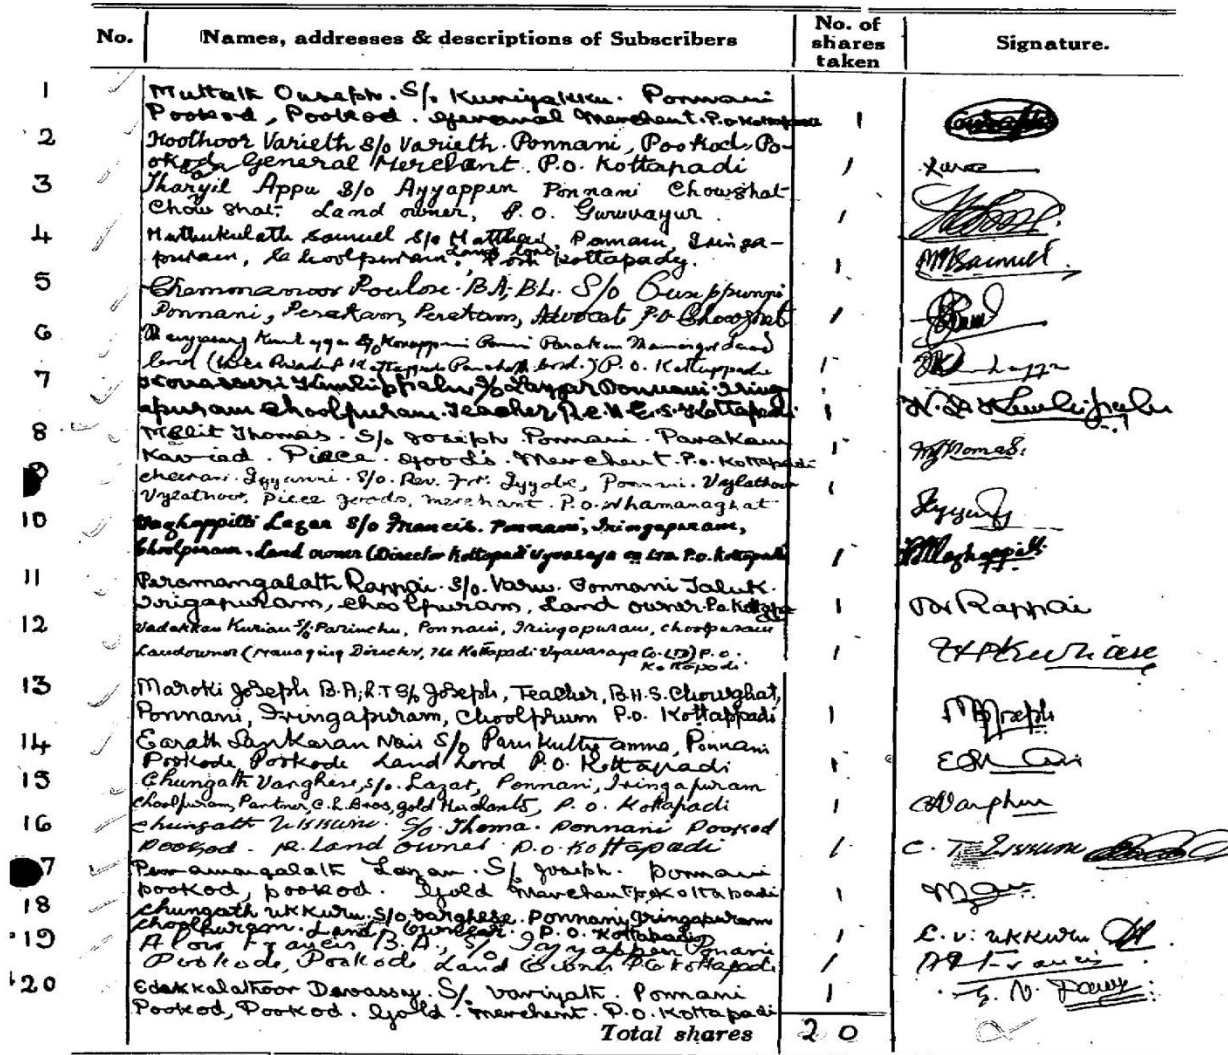 No. Names, addresses & descriptions of Subscribers No. of shares taken Signature.
1 Muttath Ouseph. S/o Kuniyakku. Ponnani
Pookod, Pookod. General Merchent. P.o Kottapadi 1
2 Koothoor Varieth S/o Varieth. Ponnani, Pookod, Po-
okod, General Merchant. P.O. Kottapadi 1
3 Tharyil Appu S/o Ayyappen Ponnani Chowghat
Chowghat. Land owner, P.O. Guruvayur. 1
4 Muthukulath Samuel S/o Matthew, Ponnani, Iringa-
puram, Choolpuram, Land lord, Post Kottapady. 1 Samuel
5 Chemmanoor Poulose B.A, B.L. S/o Ouseppunni
Ponnani, Perakam, Perakam, Advocate P.O Chowghat 1
6 S/o Land
lord P.O. Kottappadi 1
7 S/o Lazar Ponnani Iring
apuram Choolpuram. Teacher Kottapadi 1
8 Thomas. S/o Joseph. Ponnani.
Piece. goods. Merchent. P.o. Kottapadi 1 Thomas.
9 Cheeran. Iyyunni. S/o. Rev. Fr. Iyyobe, Ponnani. Vylathoor
Vylathoor, Piece goods, merchant. P.O. Nhamanaghat 1
10 Vaghappilli Lazar S/o Francis. Ponnani, Iringapuram,
Choolpuram. Land owner (Director Kottapadi Vyavasaya Co Ltd. P.O. Kottapadi) 1
11 Peramangalath Rappai. S/o. Varu. Ponnani Taluk.
Irigapuram, Choolpuram, Land owner. P.o Kottapa 1 Rappai
12 Vadakkan Kurian S/o Parinchu, Ponnani, Iringapuram, Choolpuram
Landowner (Managing Director, The Kottapadi Vyavasaya Co. LTD) P.O. Kottapadi. 1
13 Maroki Joseph B.A; L.T S/o Joseph, Teacher, B.H.S. Chowghat,
Ponnani, Iringapuram, Choolphrum P.O. Kottappadi 1 Joseph
14 Earath Sankaran Nair S/o Parukutty amma, Ponnani
Pookode, Pookode Land Lord P.O. Kottapadi 1
15 Chungath Varghese, S/o. Lazar, Ponnani, Iringapuram
Choolpuram, Partner, C.L. Bros, gold Merchants, P.O. Kottapadi 1
16 Chungath Ukkuru. S/o. Thoma. Ponnani Pookod
Pookod. Land owner P.O. Kottapadi 1
17 Peramangalath Lazar. S/o Joseph. Ponnani
Pookod, Pookod. Gold Merchant P.o Kottapadi 1
18 Chungath Ukkuru. S/o Varghese. Ponnani, Iringapuram
Choolpuram. Land Owner. P.O. Kottapadi 1 C. V. Ukkuru
19 Francis B.A., S/o Iyyappen Ponnani
Pookode, Pookode Land Owner P.O Kottapadi 1 Francis
20 Edakkalathoor Devassy. S/o Variyath. Ponnani
Pookod, Pookod. Gold. merchent. P.O. Kottapadi 1
Total shares 20